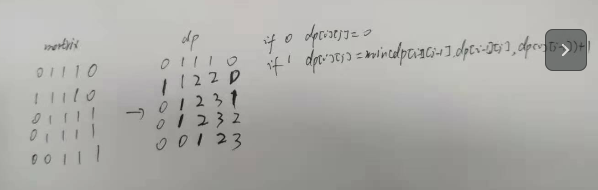 matrix
0 1 1 1 0
1 1 1 1 0
0 1 1 1 1
0 1 1 1 1
0 0 1 1 1
→
dp
0 1 1 1 0
1 1 2 2 0
0 1 2 3 1
0 1 2 3 2
0 0 1 2 3
if 0 dp[i][j]=0
if 1 dp[i][j]=min(dp[i][j-1],dp[i-1][j],dp[i-1][j-1])+1